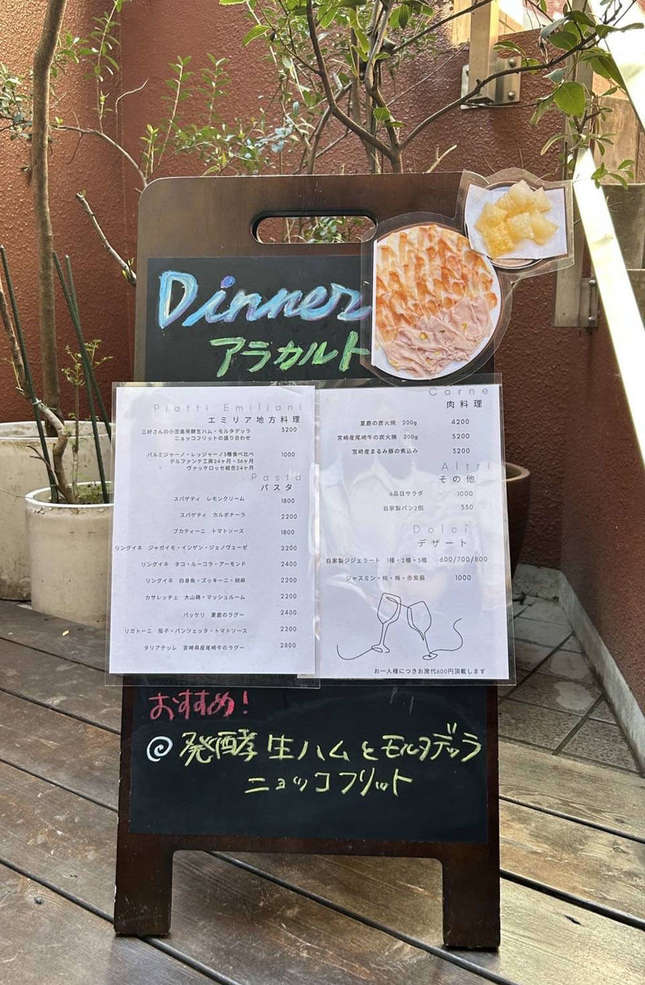 Dinner
アラカルト
Piatti Emiliani
エミリア地方料理
三好さんの小豆島発酵生ハム・モルタデッラ 3200
ニョッコフリットの盛り合わせ
パルミジャーノ・レッジャーノ3種食べ比べ 1000
デルファンテ工房24ヶ月・36ヶ月
ヴァッケロッセ組合24ヶ月
Pasta
パスタ
スパゲティ レモンクリーム 1800
スパゲティ カルボナーラ 2200
ブカティーニ トマトソース 1800
リングイネ ジャガイモ・インゲン・ジェノヴェーゼ 2200
リングイネ タコ・ルーコラ・アーモンド 2400
リングイネ 白身魚・ズッキーニ・ 2200
カサレッチェ 大山鶏・マッシュルーム 2200
パッケリ 夏鹿のラグー 2400
リガトーニ 茄子・パンチェッタ・トマトソース 2200
タリアテッレ 宮崎県産尾崎牛のラグー 2800
Carne
肉料理
夏鹿の炭火焼 200g 4200
宮崎産尾崎牛の炭火焼 200g 5200
宮崎産まるみ豚の煮込み 3200
Altri
その他
品目サラダ 1000
自家製パン2個 350
Dolci
デザート
自家製ジェラート 1種・2種・3種 600/700/800
ジャスミン・桃・梅・赤紫蘇 1000
お一人様につきお席代600円頂戴します
おすすめ!
発酵生ハムとモルタデッラ
ニョッコフリット